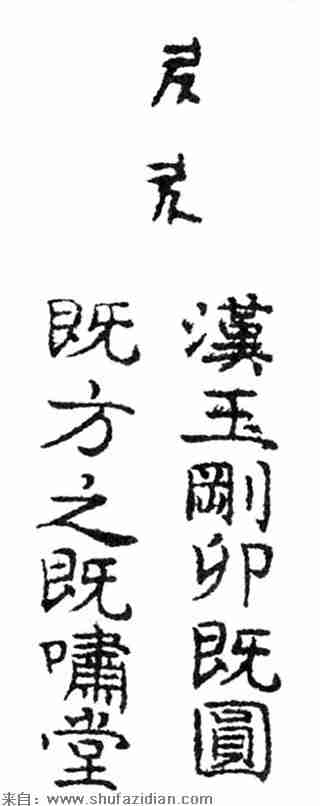 漢玉剛卯既圓
既方之既嘯堂
来自：www.shufazidian.com